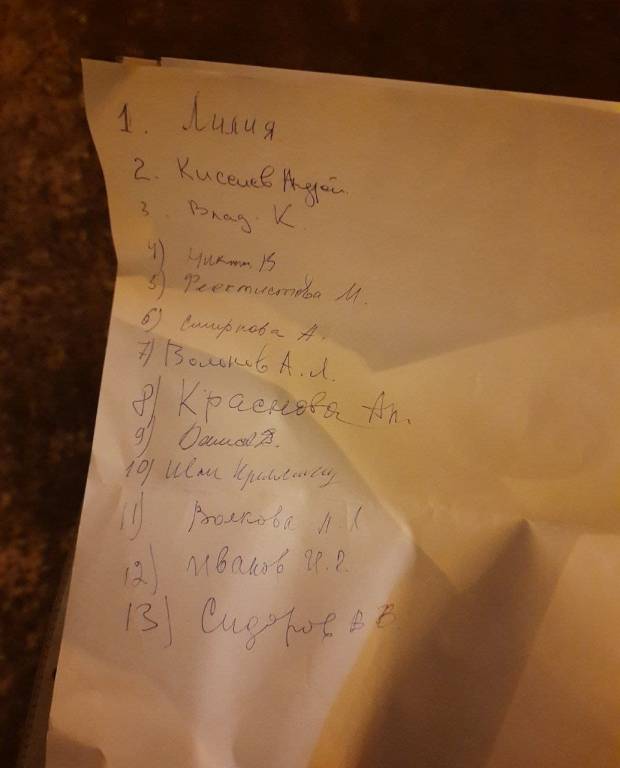 1. Лилия
2. Киселев Андрей
3. Влад. К.
4) В
5) Феоктистова М.
6) Смирнова А.
7) Волков А.Л.
8) Краснова Ап.
9) В.
10)
11) Волкова Л Л
12) Иванов И.Г.
13) Сидоров В В